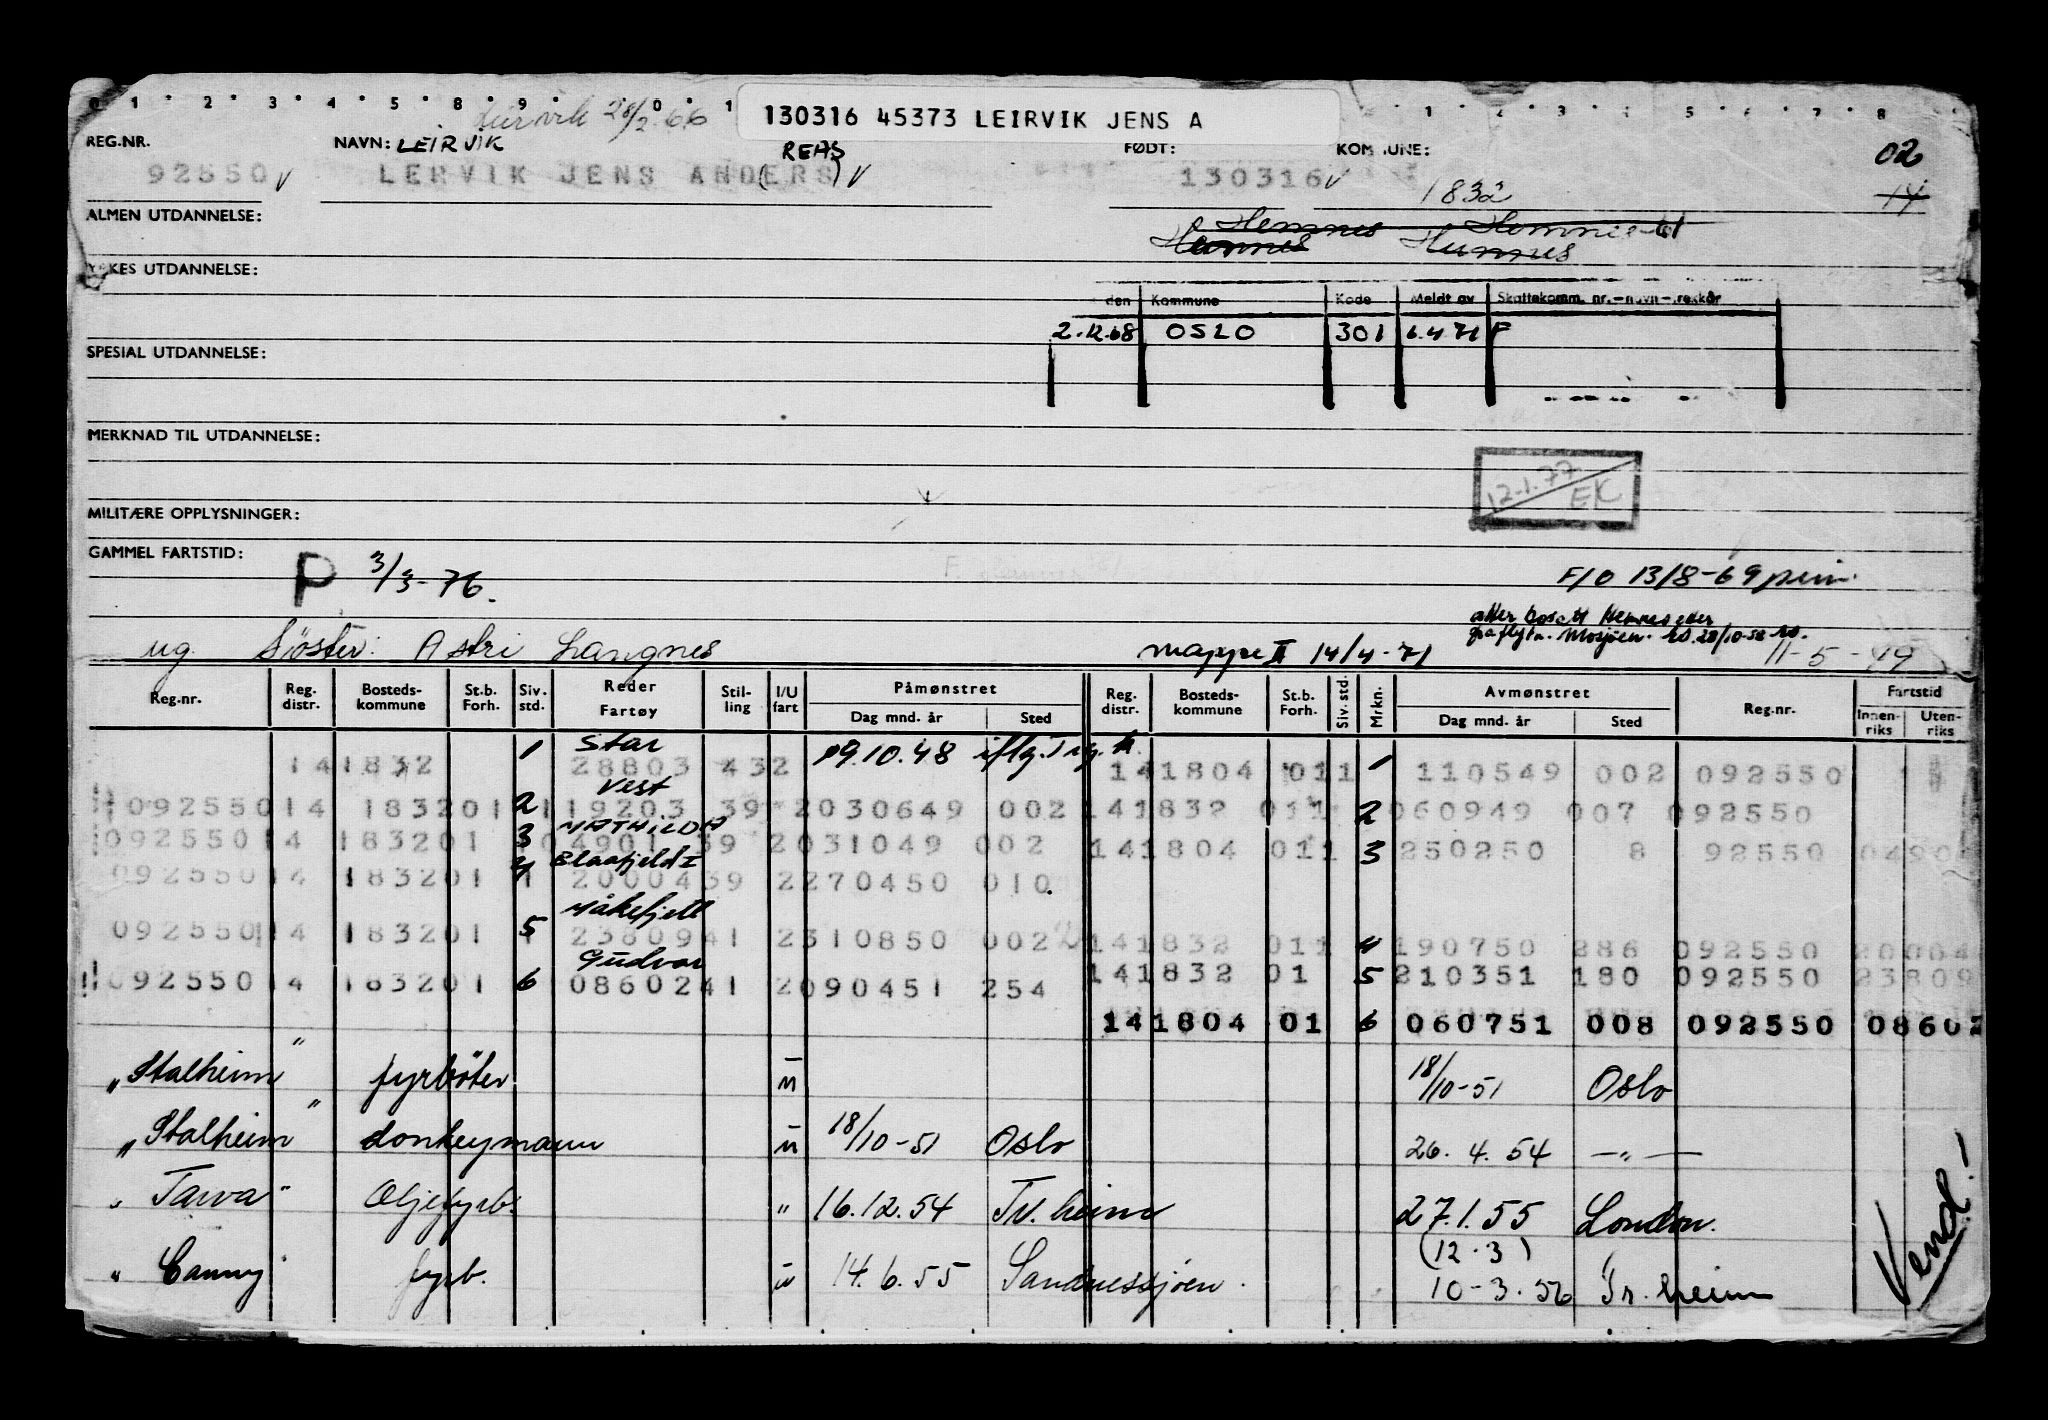 0 1 2 3 4 5 8 9 0 1 1 2 3 4 5 7 8
Leirvik 28/2-66 130316 45373 LEIRVIK JENS A
REG.NR. NAVN: LEIRVIK REAS FØDT: KOMMUNE: 02
92550 v LERVIK JENS AND(ERS) v 130316 v 1832 14
ALMEN UTDANNELSE: Hemnes
Hemnes
YRKES UTDANNELSE:
den Kommune Kode Meldt av Skattekomm. nr.-navn-trekkår
2.12.68 OSLO 301 6.4.71 F
SPESIAL UTDANNELSE:
MERKNAD TIL UTDANNELSE:
12.1.77 EK
MILITÆRE OPPLYSNINGER:
GAMMEL FARTSTID:
P 3/3-76. F/O 13/8-69
atter bosatt Hemnes etter
Mosjøen. 28/10-58
ug. Søster: Astri Langnes mappe II 14/4-71 11-5-49
Reg.nr. Reg. distr. Bosteds- kommune St.b. Forh. Siv. std. Reder Fartøy Stil- ling I/U fart Påmønstret Dag mnd. år Sted Reg. distr. Bosteds- kommune St.b. Forh. Siv. std. Mrkn. Avmønstret Dag mnd. år Sted Reg.nr. Fartstid Innen- riks Uten- riks
1 Star 09.10.48 iflg.
141832 28803 432 141804 011 1 110549 002 092550
Vest
092550 14 183201 2 119203 39 2030649 002 141832 011 2 060949 007 092550
MATHILDA
092550 14 183201 3 104901 39 2031049 002 141804 011 3 250250 8 92550 0490
Blaafjeld I
092550 14 183201 4 1 2000439 2270450 010
Måkefjell
092550 14 183201 5 1 2380941 2310850 002 141832 011 4 190750 286 092550 20004
Gudvar
092550 14 183201 6 0860241 2090451 254 141832 01 5 210351 180 092550 23809
141804 01 6 060751 008 092550 08602
„Stalheim" fyrbøter u 18/10-51 Oslo
„Stalheim" donkeymann u 18/10-51 Oslo 26.4.54 —„—
„Tarva" Oljefyrb. " 16.12.54 Tr.heim 27.1.55 London.
(12.3)
„ Canny" fyrb. u 14.6.55 Sandnessjøen. 10-3.56 Tr.heim
Vend!